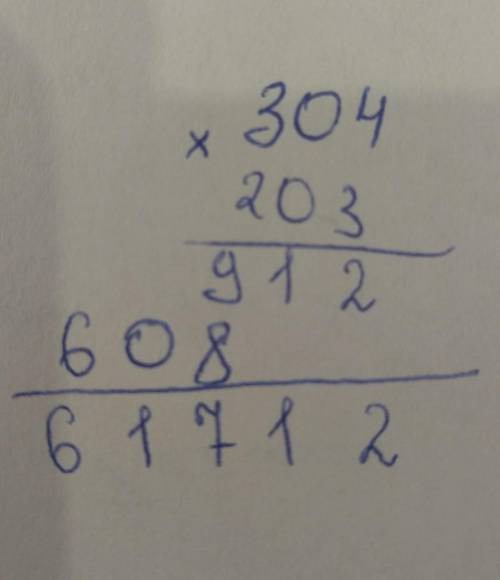 304
× 203
912
608
61712